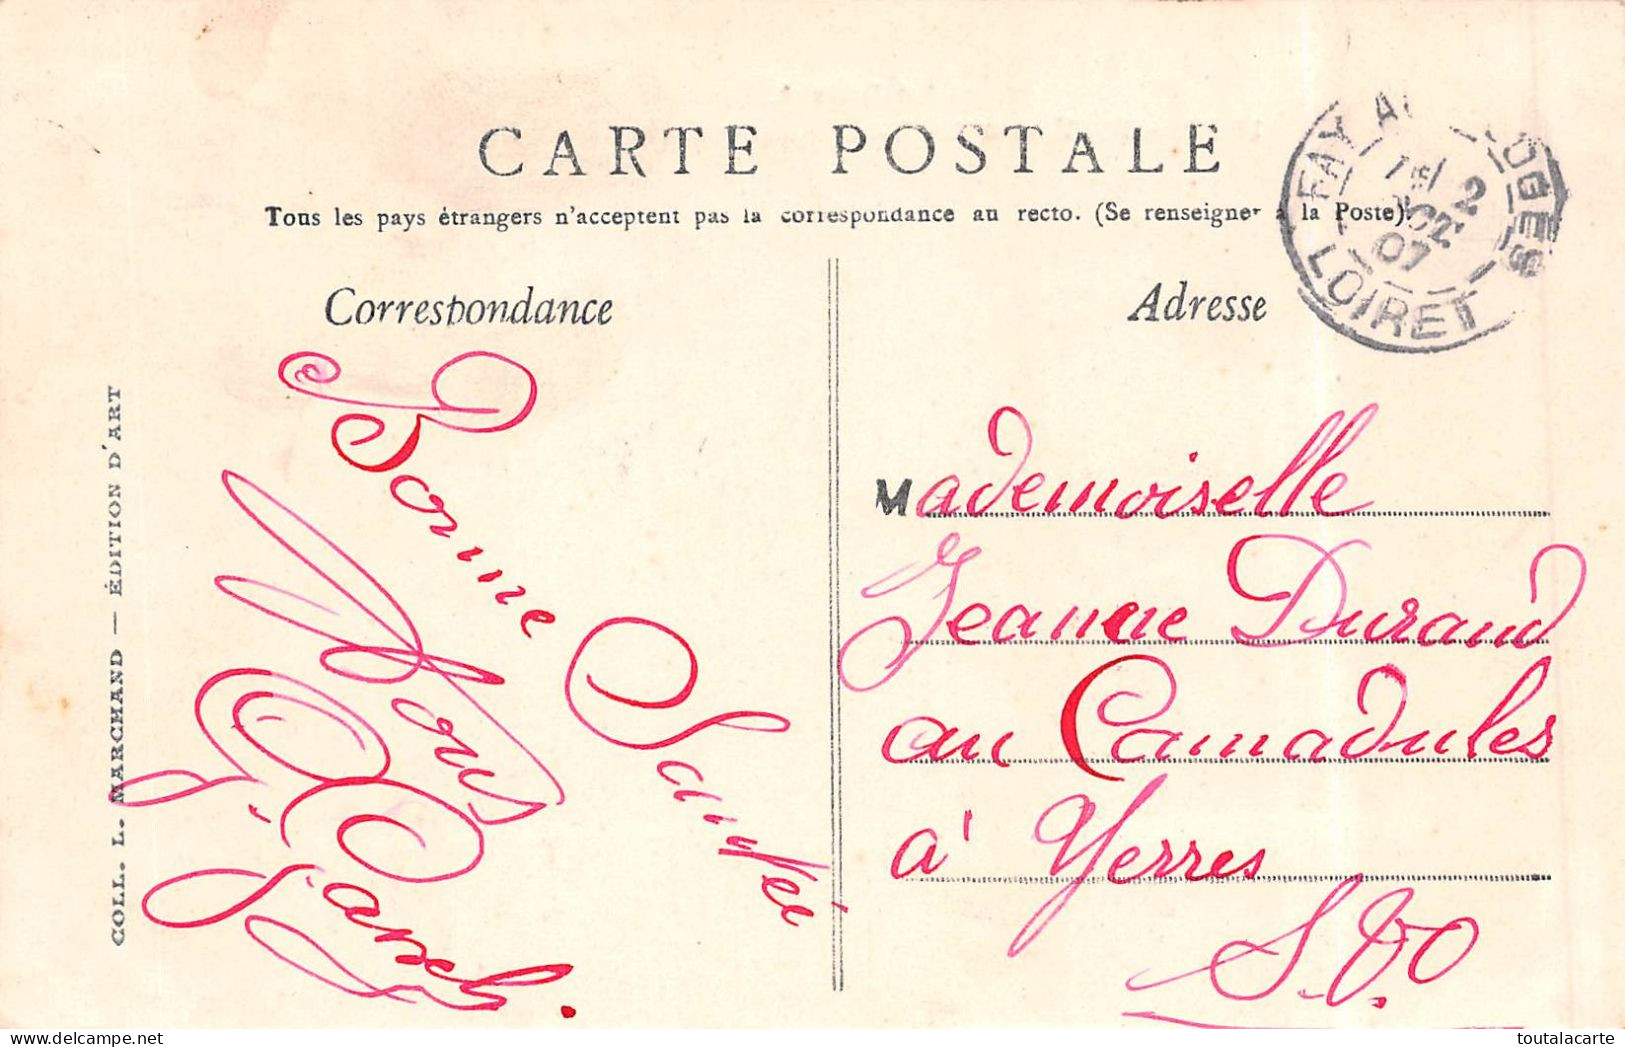 CARTE POSTALE
Tous les pays étrangers n'acceptent pas la correspondance au recto. (Se renseigner à la Poste).
FAY AUX LOGES
2
OCT
07
LOIRET
Correspondance
Adresse
Bonne Santée
COLL. L. MARCHAND — ÉDITION D'ART
Mademoiselle
Jeanne Durand
au Camadules
à Yerres
S. & O
toutalacarte